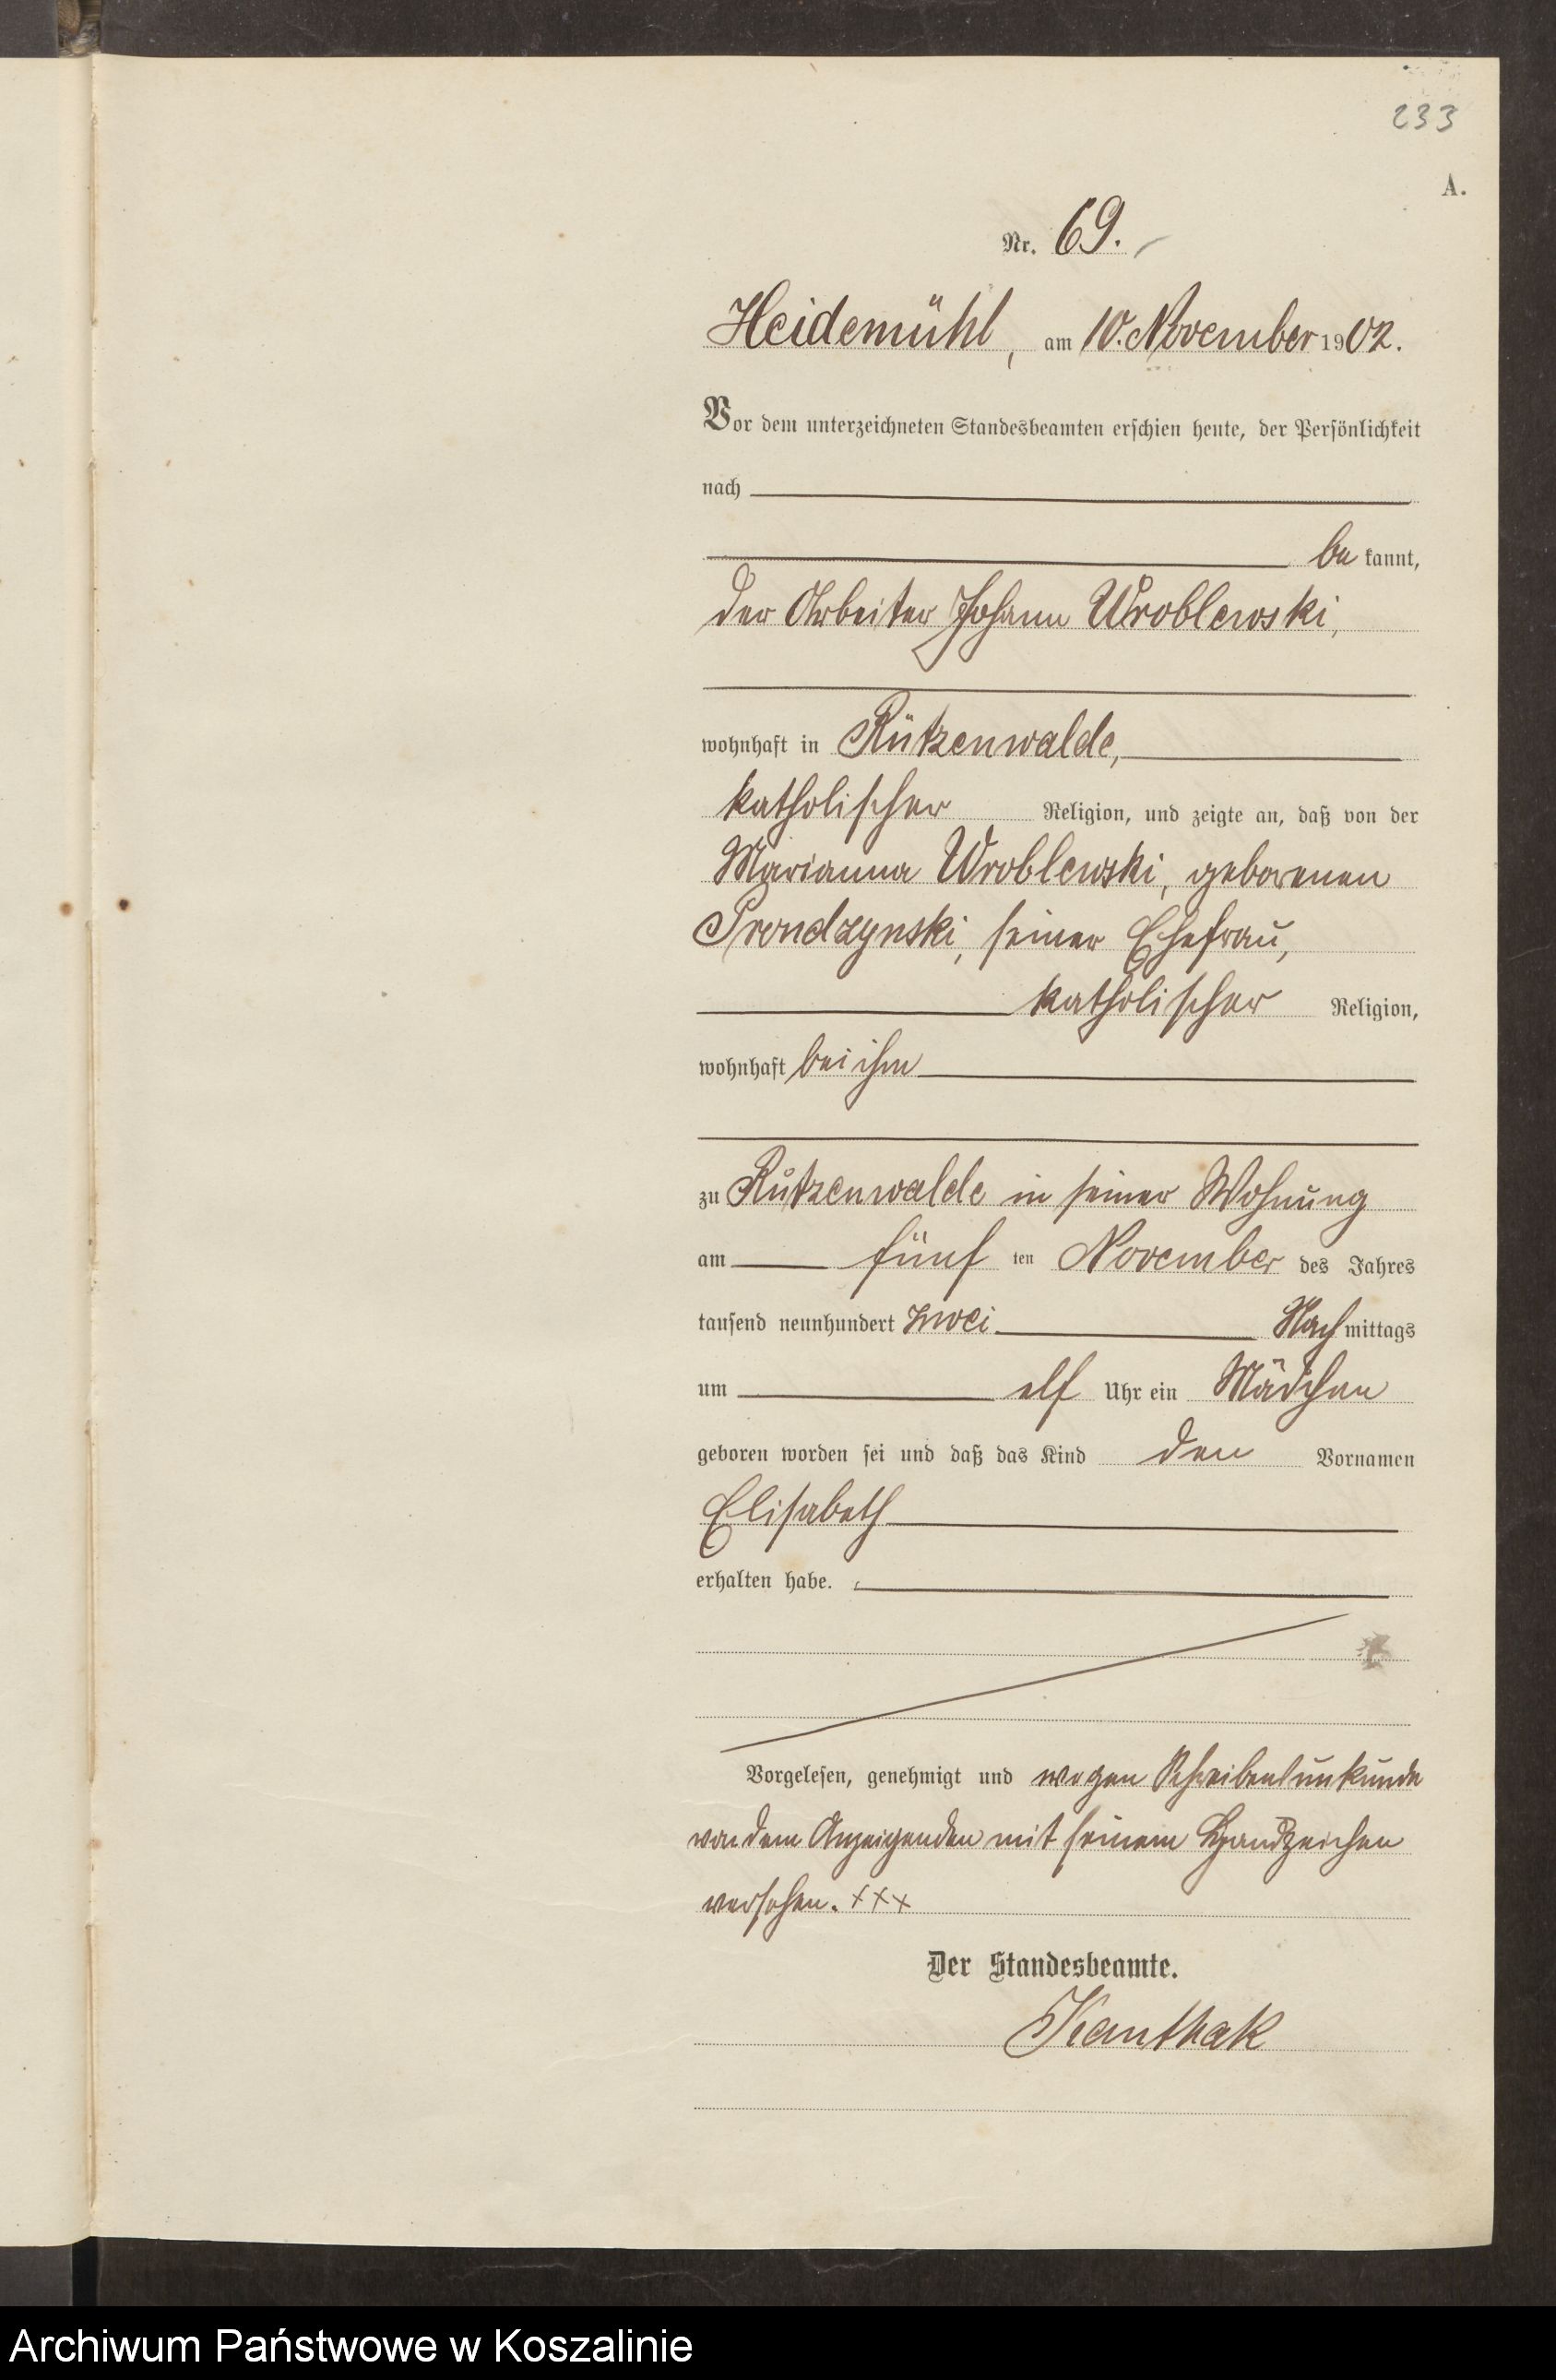 233
A.
Nr. 69.
Heidemühl, am 10. November 1902.
Vor dem unterzeichneten Standesbeamten erschien heute, der Persönlichkeit
nach
be kannt,
der Arbeiter Johann Wroblewski,
wohnhaft in Rützenwalde,
katholischer Religion, und zeigte an, daß von der
Marianna Wroblewski, geborenen
Prondzynski, seiner Ehefrau,
katholischer Religion,
wohnhaft bei ihm
zu Rützenwalde in seiner Wohnung
am fünf ten November des Jahres
tausend neunhundert zwei Nach mittags
um elf Uhr ein Mädchen
geboren worden sei und daß das Kind den Vornamen
Elisabeth
erhalten habe.
Vorgelesen, genehmigt und wegen Schreibensunkunde
von dem Anzeigenden mit seinem Handzeichen
versehen. +++
Der Standesbeamte.
Kanthak
Archiwum Państwowe w Koszalinie